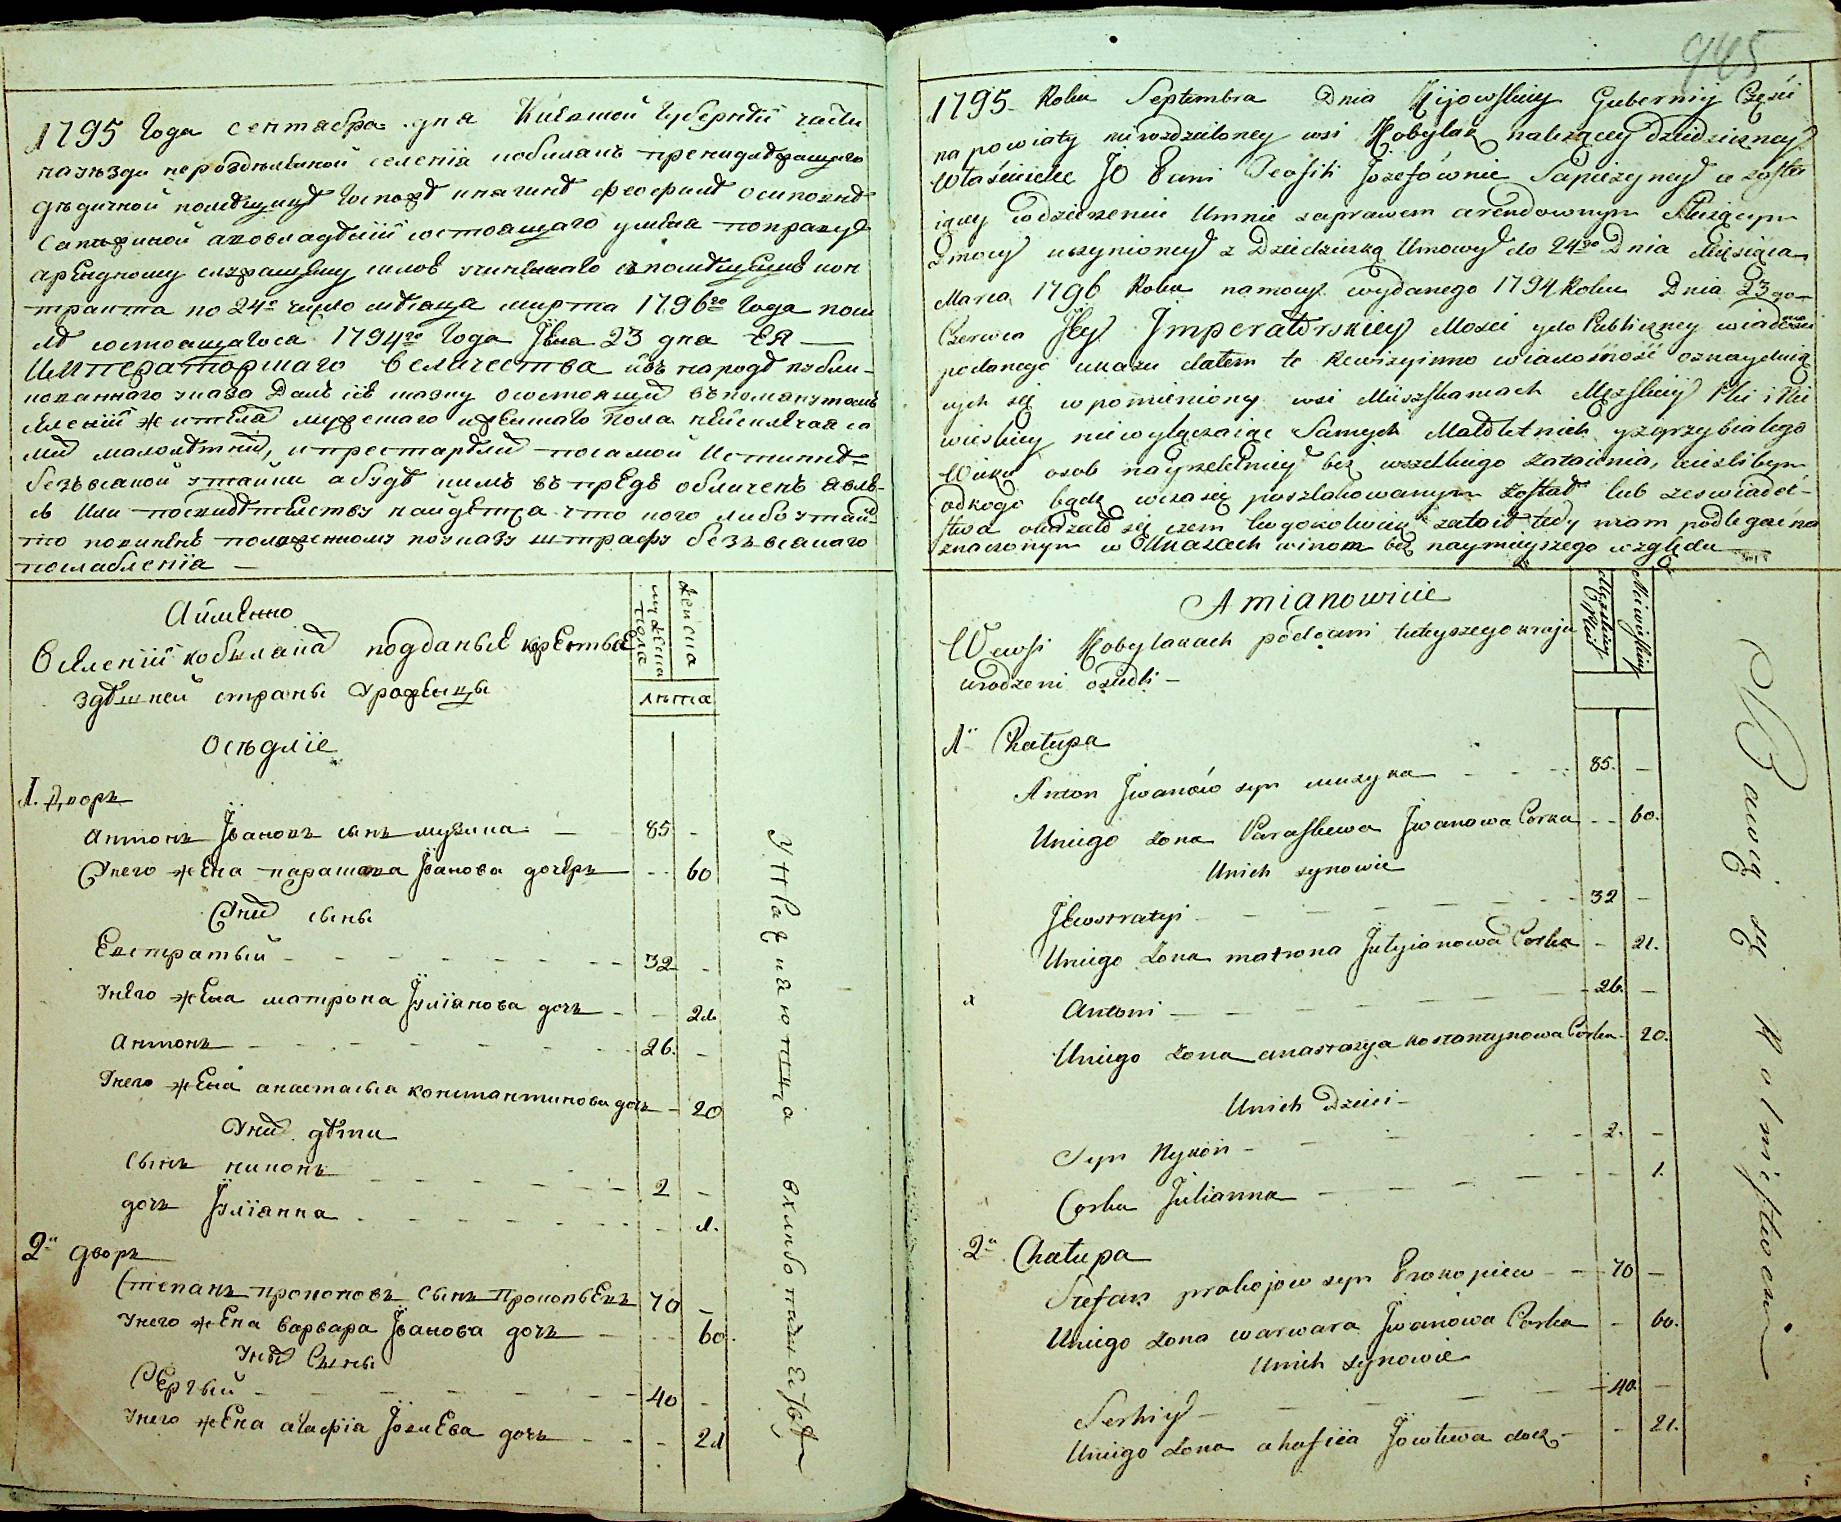 1795 Года сентабра дна Киевской Губернїи части
на уезди неро́зделеной селенїя кобиланъ принадлежащаго
дѣдичной помѣщицѣ Госпожѣ княгинѣ феофилѣ осиповнѣ
Сапѣжиной а во владѣнїи состоящаго у мене по праву
арендному служащему силою контракта
по 24е число мѣсяца марта 1796го Года
состоящагося 1794го Года Їюня 23 дна ЕЯ —
Императорскаго величества въ народѣ публи-
кованнаго указа Далъ сїю сказку о состоящих въ помянутомъ
селенїи жителях мужескаго и женскаго пола не исключая
малолѣтних, и престарѣлих по самой Истиннѣ
безъ всякой утайки а буде кимъ въ предь обличенъ явлю-
сь Или по свидѣтелству найдется что кого либо утаил
то повиненъ положенному по указу штрафу безъ всякаго
послабленїя —
А йменно
мужеска пола
женска
В селенїи кобилаках подданые крестьяне
здѣшней страны уроженцы
лѣта
Оседлїе
1. Дворъ
Антонъ Ївановъ сынъ музика — 85 -
Унего жена парашкева Їванова дочерь - - 60
Уних сыны
Евстратый - - - 32 -
Унего жена матрона Їулїанова дочь - - 21
Антонъ - - - 26. -
Унего жена анастасыа константинова дочь - 20
Уних дѣти
Сынъ никонъ - - - 2 -
дочь Їулїанна - - - 1.
2й дворъ
Степанъ прокоповъ сынъ прокопьевъ 70 -
Унего жена варвара Їванова дочь - - 60.
Уних Сыны
Сергѣй - - - 40 -
Унего жена агафїа Їовлева дочь - - 21
Упражняются в хлебопашестве
945
1795 Roku Septembra Dnia Kijowskiey Gubernij Części
na powiaty nierozdzieloney wsi Kobylak należącey dziedziczney
Właścicielce JO Pani Teofili Józefównie Sapieżyney a zosta
iącey w dzierżeniu Umnie zaprawem arendownym Służącym
Zmocy uczynioney z Dziedziczką Umowy do 24go Dnia Miesiąca
Marca 1796 Roku namocy wydanego 1794 Roku Dnia 23go
Czerwca Jey Imperatorskiey Mości y do Publiczney wiadomości
podanego ukazu dałem te Rewizyinno wiadomość oznayduią
cych się w pomienioney wsi Mieszkańcach Męzskiey Płci i Nie
wieskiey niewyłączaiąc Samych Małoletnich y zgrzybiałego
Wieku osob nayrzetelniey bez wszelkiego zataienia, ieżelibym
odkogo bądź wczasie poszlakowanym został lub zeswiadec-
twa okazało się czem kogokolwiek zataił tedy mam podlegać na
znaczonym w Ukazach winom bez naymnieyszego względu
Amianowicie
Męzskiey Płci
Niewieskiey
W wsi Kobylakach poddani tuteyszego kraju
urodzeni osiedli -
1a Chałupa
Anton Jwanów syn muzyka - - - 85. -
Uniego żona Paraskewa Jwanowa Corka - - 60.
Unich synowie
Jewstratyi - - - 32 -
Uniego żona matrona Julyianowa Corka - 21.
Antoni - - - 26. -
Uniego żona anastazya kostantynowa Corka - 20.
Unich Dzieci -
Syn Nykon - - - 2. -
Corka Julianna - - - 1.
2a Chałupa
Stefan prokojow syn Prokopiew - - 70 -
Uniego żona warwara Jwanowa Corka - 60.
Unich synowie
Serhiy - - - 40. -
Uniego żona ahafiia Jowlewa docz - - 21.
Bawią się Rolnictwem